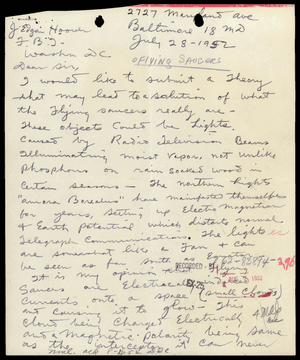 2727 Maryland ave
Baltimore 18 Md
July 28-1952
J Edgar Hoover
F.B.I.
Washn DC
Dear Sir,
FLYING SAUCERS
I would like to submit a Theory
that may lead to a solution of what
the Flying saucers really are-
These objects Could be Lights.
Caused by Radio Television Beams
Illuminating moist vapor, not unlike
Phosphorus on rain soaked wood in
Certain seasons - The northern Lights
"aurora Borealis" have manifested themselves
for years, setting up Electro Magnetism
& Earth Potential which distorts normal
Telegraph Communications. The Lights
are somewhat like a Fan & can
be seen as far south as
RECORDED
It is my opinion
Saucers are Electrical
Currents onto a space (small Clouds)
and causing it to glow - The
Cloud being Charged Electrically
And a Magnetic Polarity being same
as the interceptors it can never